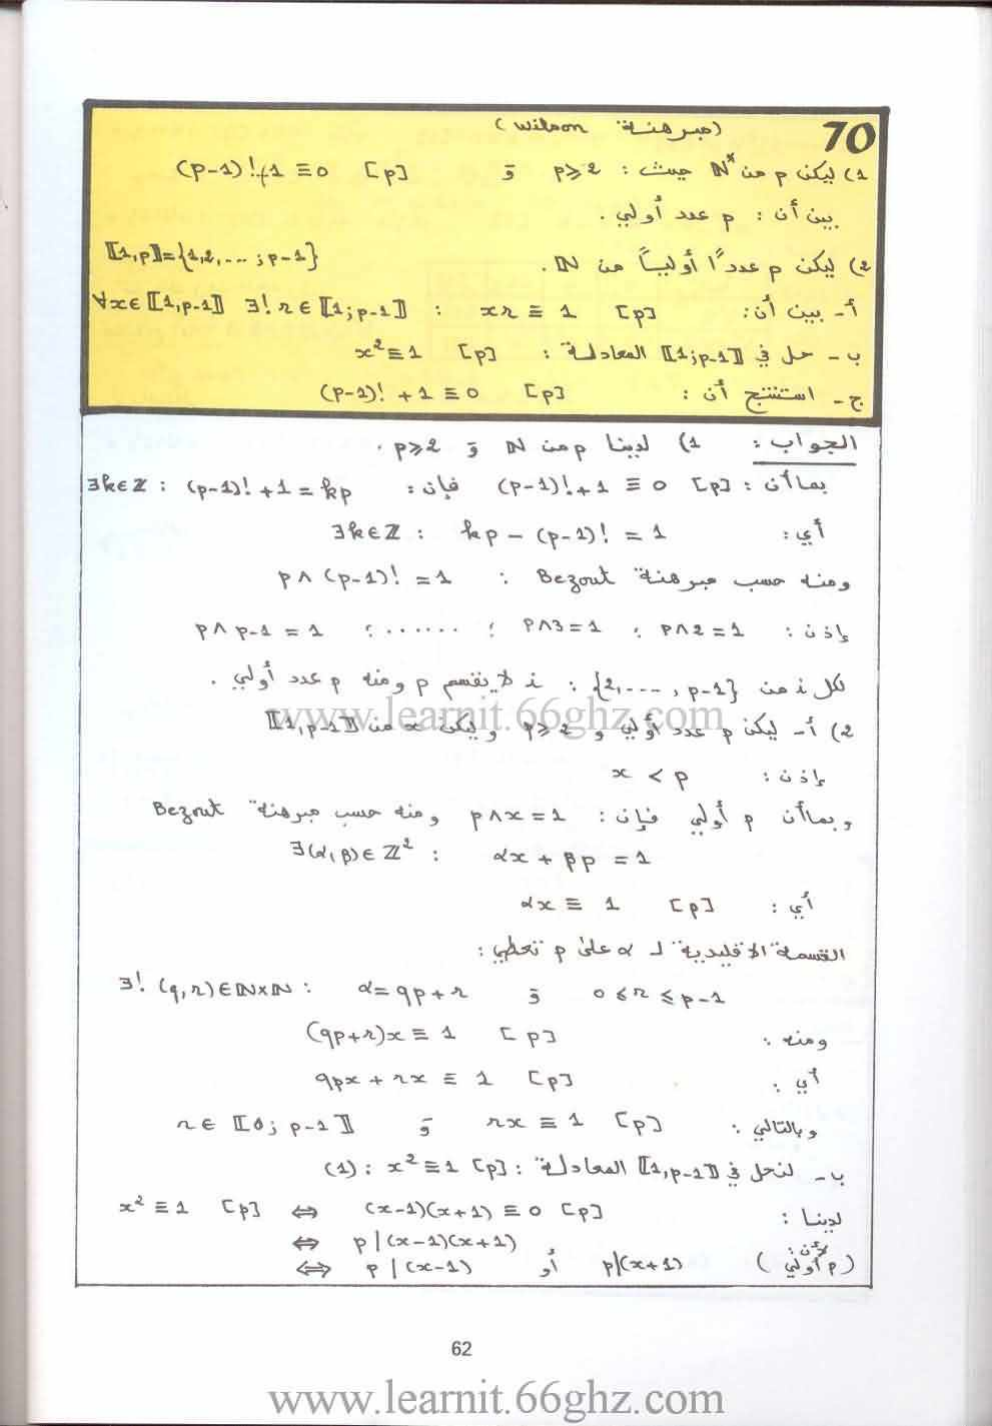 70
(مبرهنة Wilson)
1) ليكن p من ℕ* حيث : p⩾2 و (p-1)!+1 ≡ 0 [p]
بين أن : p عدد أولي .
2) ليكن p عددًا أوليًا من ℕ. ⟦1,p⟧={1,2,... ;p-1}
أ- بين أن: ∀x∈⟦1,p-1⟧ ∃! r∈⟦1;p-1⟧ : xr ≡ 1 [p]
ب- حل في ⟦1;p-1⟧ المعادلة : x² ≡ 1 [p]
ج- استنتج أن : (p-1)! + 1 ≡ 0 [p]
الجواب : 1) لدينا p من ℕ و p⩾2 .
بما أن : (p-1)!+1 ≡ 0 [p] فإن : ∃k∈ℤ : (p-1)! +1 = kp
أي : ∃k∈ℤ : kp - (p-1)! = 1
ومنه حسب مبرهنة Bezout : p∧(p-1)! = 1
إذن : p∧2=1 ; p∧3=1 ; ...... ; p∧p-1 = 1
لكل i من {2,..., p-1} : i لا يقسم p ومنه p عدد أولي .
www.learnit.66ghz.com
2) أ- ليكن p عدد أولي و p⩾2 وليكن x من ⟦1,p-1⟧
إذن : x < p
وبما أن p أولي فإن : p∧x=1 ومنه حسب مبرهنة Bezout
∃(α,β)∈ℤ² : αx + βp = 1
أي : αx ≡ 1 [p]
القسمة الاقليدية لـ α على p تعطي :
∃! (q,r)∈ℕ×ℕ : α=qp+r و 0 ⩽ r ⩽ p-1
ومنه : (qp+r)x ≡ 1 [p]
أي : qpx + rx ≡ 1 [p]
وبالتالي : rx ≡ 1 [p] و r∈⟦0; p-1⟧
ب- لنحل في ⟦1,p-1⟧ المعادلة : (1) : x² ≡ 1 [p]
لدينا : x² ≡ 1 [p] ⇔ (x-1)(x+1) ≡ 0 [p]
⇔ p | (x-1)(x+1)
⇔ p | (x-1) أو p|(x+1) (لأن : p أولي)
62
www.learnit.66ghz.com